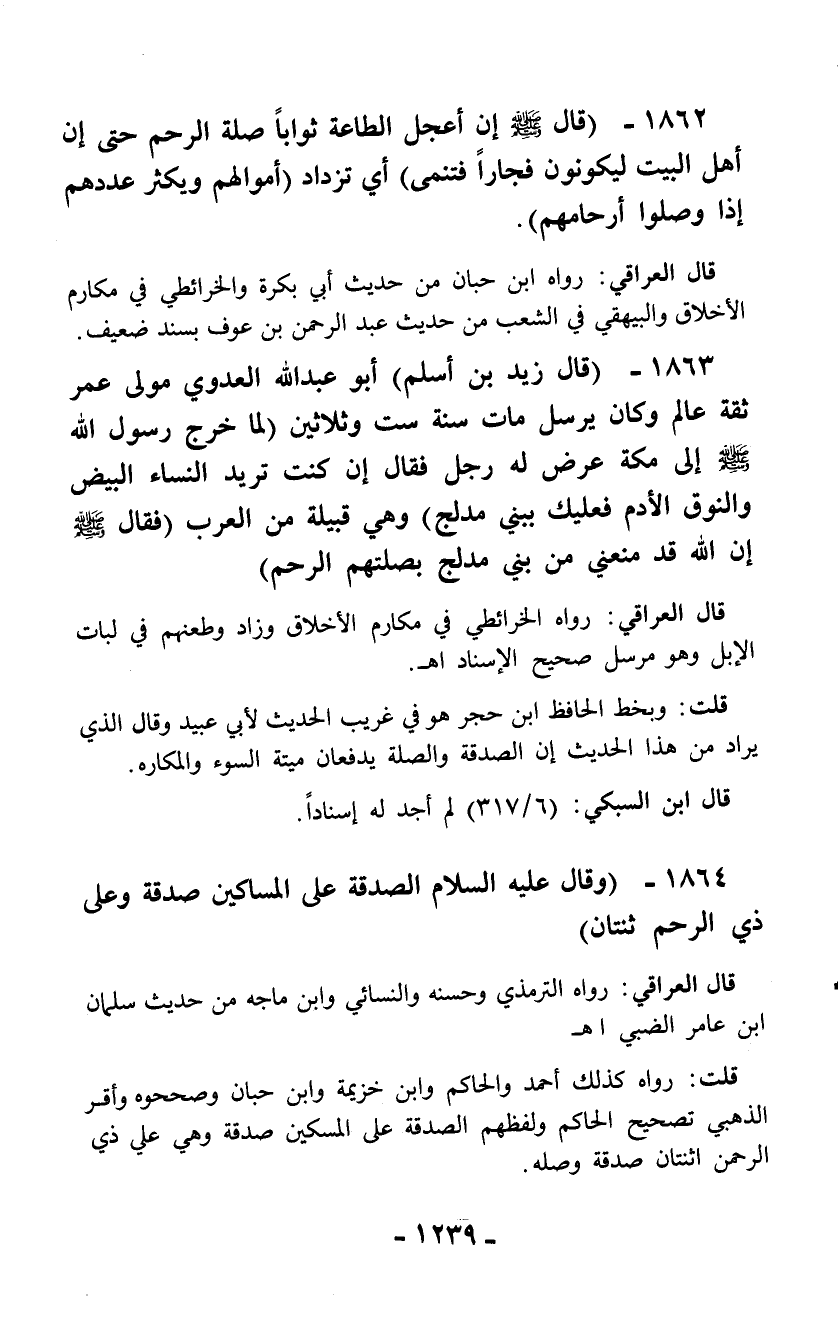 ١٨٦٢ - (قال ﷺ إن أعجل الطاعة ثواباً صلة الرحم حتى إن
أهل البيت ليكونون فجاراً فتنمى) أي تزداد (أموالهم ويكثر عددهم
إذا وصلوا أرحامهم).
قال العراقي: رواه ابن حبان من حديث أبي بكرة والخرائطي في مكارم
الأخلاق والبيهقي في الشعب من حديث عبد الرحمن بن عوف بسند ضعيف.
١٨٦٣ - (قال زيد بن أسلم) أبو عبدالله العدوي مولى عمر
ثقة عالم وكان يرسل مات سنة ست وثلاثين (لما خرج رسول الله
ﷺ إلى مكة عرض له رجل فقال إن كنت تريد النساء البيض
والنوق الأدم فعليك ببني مدلج) وهي قبيلة من العرب (فقال ﷺ
إن الله قد منعني من بني مدلج بصلتهم الرحم)
قال العراقي: رواه الخرائطي في مكارم الأخلاق وزاد وطعنهم في لبات
الإبل وهو مرسل صحيح الإسناد اهـ.
قلت: وبخط الحافظ ابن حجر هو في غريب الحديث لأبي عبيد وقال الذي
يراد من هذا الحديث إن الصدقة والصلة يدفعان ميتة السوء والمكاره.
قال ابن السبكي: (٣١٧/٦) لم أجد له إسناداً.
١٨٦٤ - (وقال عليه السلام الصدقة على المساكين صدقة وعلى
ذي الرحم ثنتان)
قال العراقي: رواه الترمذي وحسنه والنسائي وابن ماجه من حديث سلمان
ابن عامر الضبي اهـ
قلت: رواه كذلك أحمد والحاكم وابن خزيمة وابن حبان وصححوه وأقر
الذهبي تصحيح الحاكم ولفظهم الصدقة على المسكين صدقة وهي علي ذي
الرحمن اثنتان صدقة وصله.
- ١٢٣٩ -